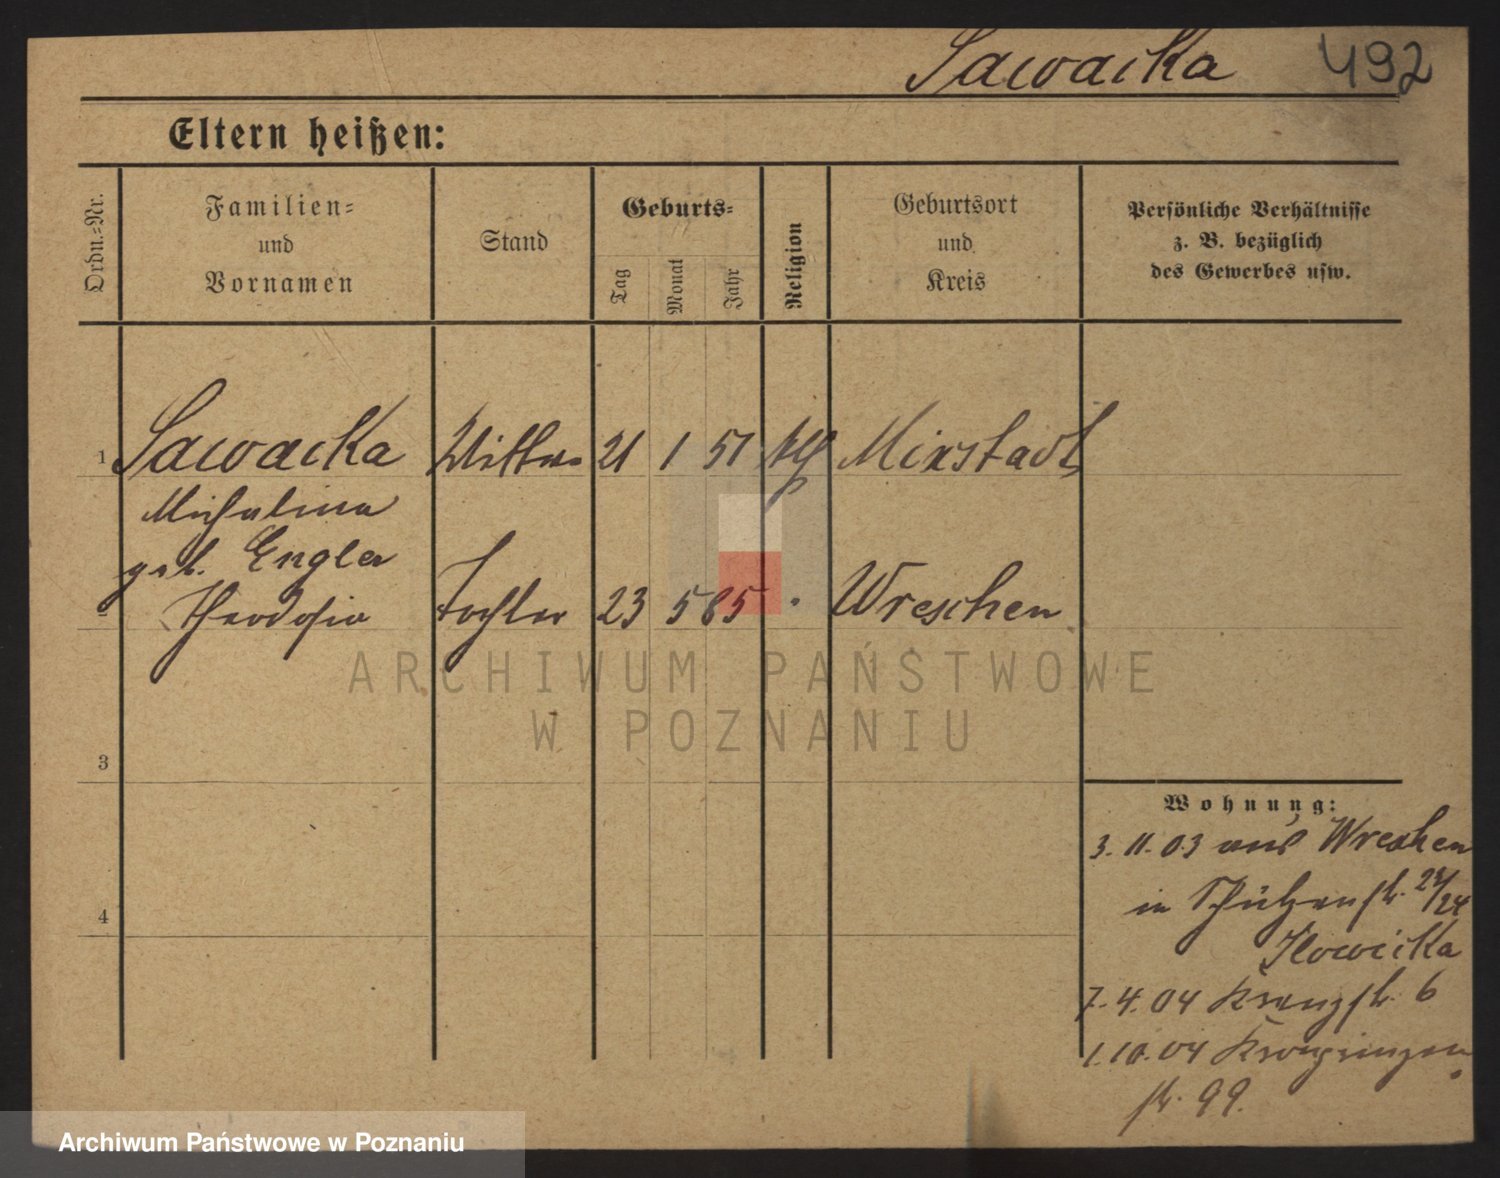 Sawacka 492
Eltern heißen:
Ordn.-Nr.
Familien-
und
Vornamen
Stand
Geburts-
Tag
Monat
Jahr
Religion
Geburtsort
und
Kreis
Persönliche Verhältnisse
z. B. bezüglich
des Gewerbes usw.
1 Sawacka Wittwe 21 1 51 kth Mixstadt
Michalina
geb. Engler
2 Theodosia Tochter 23 5 85 Wreschen
ARCHIWUM PAŃSTWOWE
W POZNANIU
3
4
Wohnung:
3. 11. 03 aus Wreschen
in Schützenstr. 23/24
7. 4. 04 Kranzstr. 6
1. 10. 04 Kronprinzen
str. 99.
Archiwum Państwowe w Poznaniu